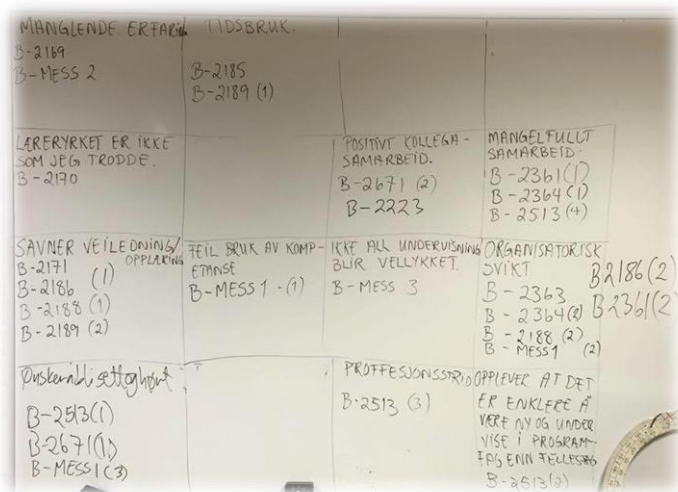 MANGLENDE ERFARING
B-2169
B-MESS 2
TIDSBRUK.
B-2185
B-2189 (1)
LÆRERYRKET ER IKKE
SOM JEG TRODDE.
B-2170
POSITIVT KOLLEGA-
SAMARBEID.
B-2671 (2)
B-2223
MANGELFULLT
SAMARBEID.
B-2361(1)
B-2364(1)
B-2513(4)
SAVNER VEILEDNING/
OPPLÆRING
B-2171
B-2186 (1)
B-2188 (1)
B-2189 (2)
FEIL BRUK AV KOMP-
ETANSE
B-MESS 1 - (1)
IKKE ALL UNDERVISNING
BLIR VELLYKKET.
B-MESS 3
ORGANISATORISK
SVIKT
B-2363
B-2364(2)
B-2188 (2)
B-MESS1 (2)
B2186(2)
B2361(2)
Ønsker å bli sett og hørt
B-2513(1)
B-2671(1)
B-MESS1(3)
PROFFESJONSSTRID
B-2513 (3)
OPPLEVER AT DET
ER ENKLERE Å
VÆRE NY OG UNDER
VISE I PROGRAM-
FAG ENN FELLESFAG
B-2513(2)